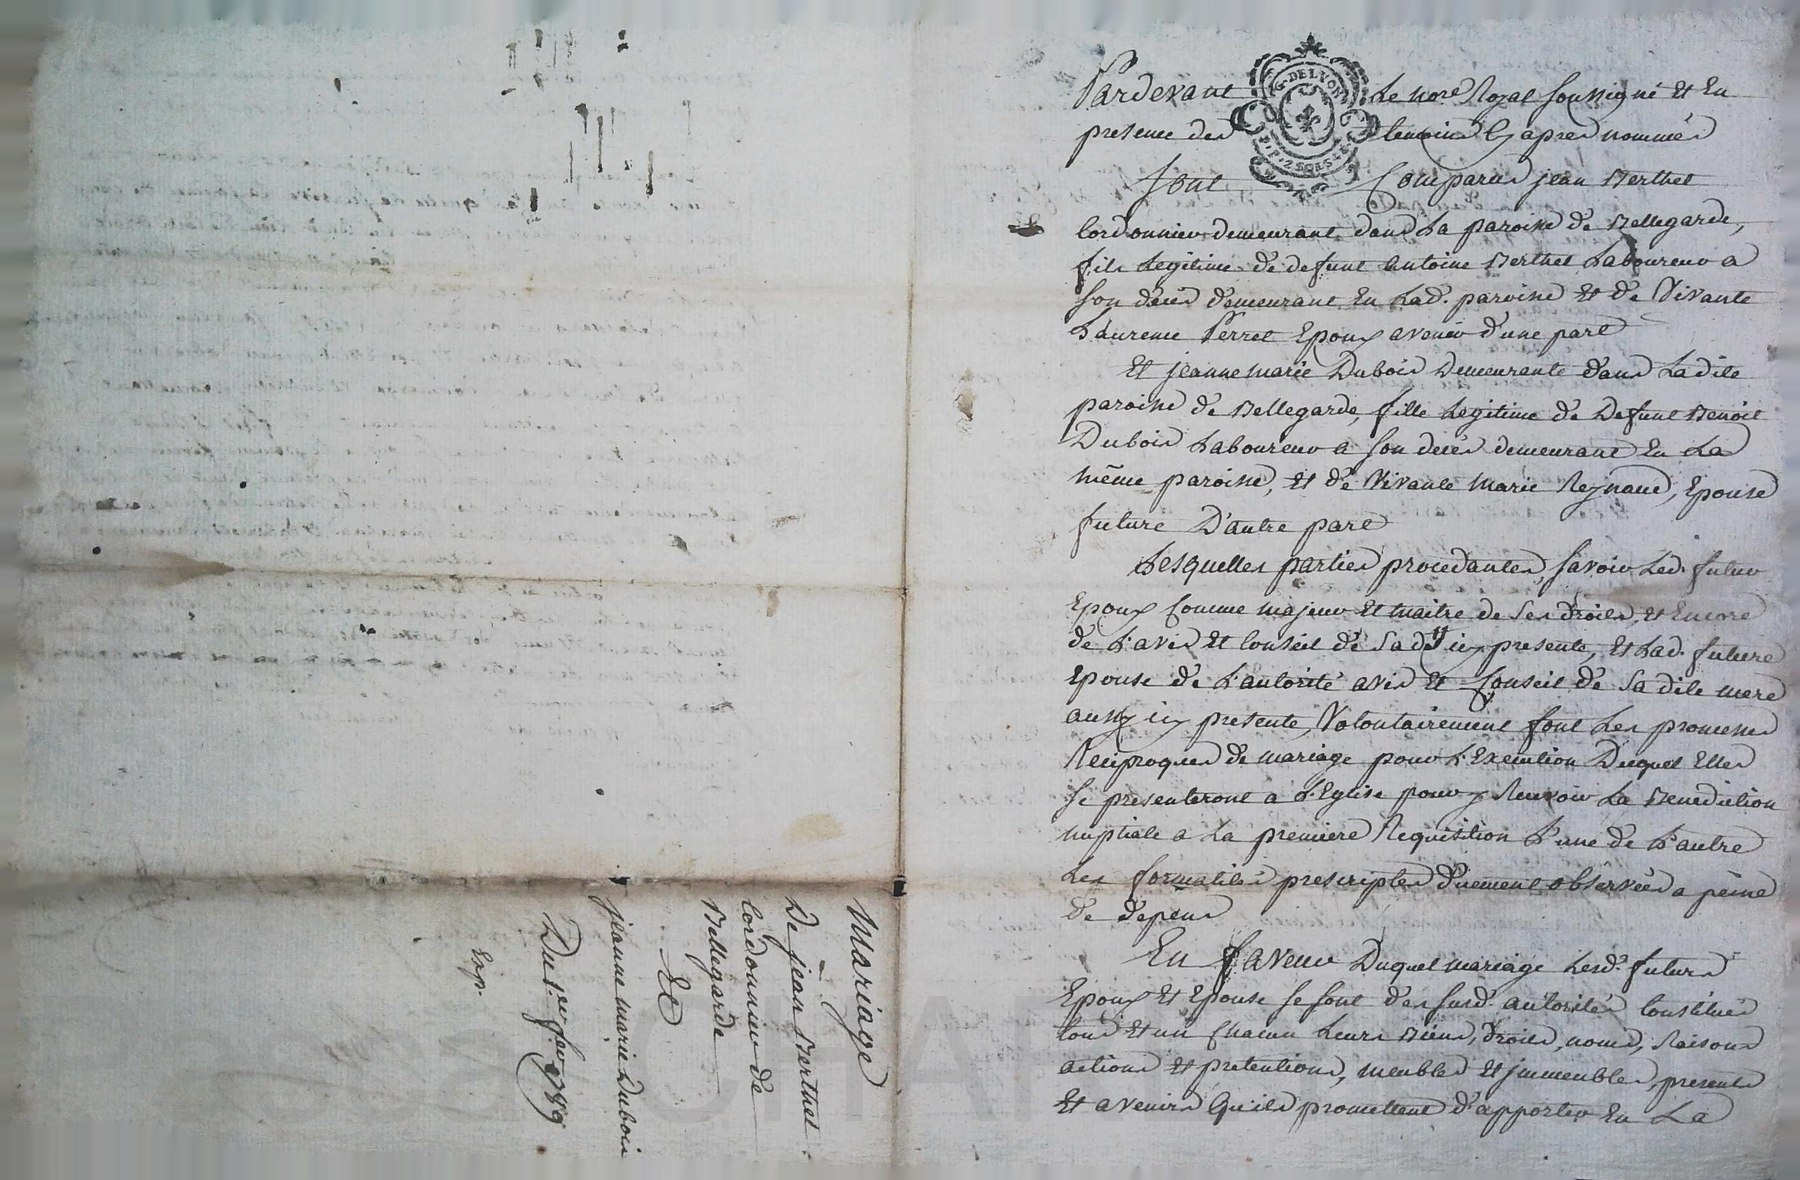 Pardevant Le nore. Royal soussigné Et En
presence des temoins Cy apres nommés
Sont Comparus jean Berthet
Cordonnier demeurant dans La paroisse de Bellegarde,
fils Legitime de defunt Antoine Berthet Laboureur a
son décés demeurant En Lad. paroisse Et de Vivante
Laurence Perret Epoux avenir d'une part
Et jeanne marie Dubois Demeurante dans Ladite
paroisse de Bellegarde, fille Legitime de Defunt Benoit
Dubois Laboureur a son decés demeurant En La
même paroisse, Et de Vivante Marie Reynaud, Epouse
future D'autre part
Lesquelles parties procedantes, savoir Led. futur
Epoux Comme majeur Et maitre de Ses droits, Et Encore
de L'avis Et Conseil de Sad. icy presente, Et Lad. future
Epouse de L'autorité avis Et Conseil de Sa dite mere
aussy icy presente, Volontairement font Les promesses
Reciproques de mariage pour L'Execution Duquel Elles
se presenteront a L'Eglise pour y Recevoir La Benediction
nuptiale a La premiere Requisition L'une de L'autre
Les formalités prescriptes düement observées a peine
de depens
En faveur Duquel mariage Lesd. futurs
Epoux Et Epouse se sont des susd. autorités Constitués
tous Et un Chacun Leurs Biens, droits, noms, Raisons
actions Et pretentions, meubles Et jmmeubles, presents
Et avenirs Qu'ils promettent d'apporter En La
G. DE LYON
P. P. 2 SOLS
Mariage
De jean Berthet
Cordonnier de
Bellegarde
Et
jeanne marie Dubois
Du 1.er fev. 1789
Exp.